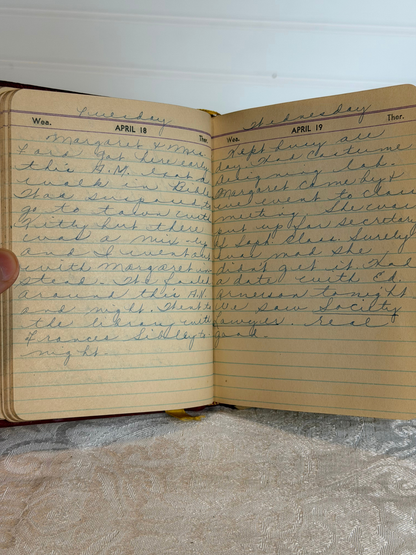 Tuesday
Wea. APRIL 18 Ther.
Margaret & Mrs.
Lord got here early
this A.M. took a
walk in
Was supposed to
go to town with
Kitty but there
was a mix-up
and I went out
with Margaret in-
stead. The
around this A.M.
and night. Went to
the library with
Frances Sibley to-
night.
Wednesday
Wea. APRIL 19 Ther.
Kept busy all
day. Had costume
designing lab.
Margaret came by &
we went to class
meeting. She was
put up for secretary
of Soph Class. Surely
was mad she
didn't get it. Had
a date with Ed.
Arneson tonight
We saw Society
Lawyer. real
good.